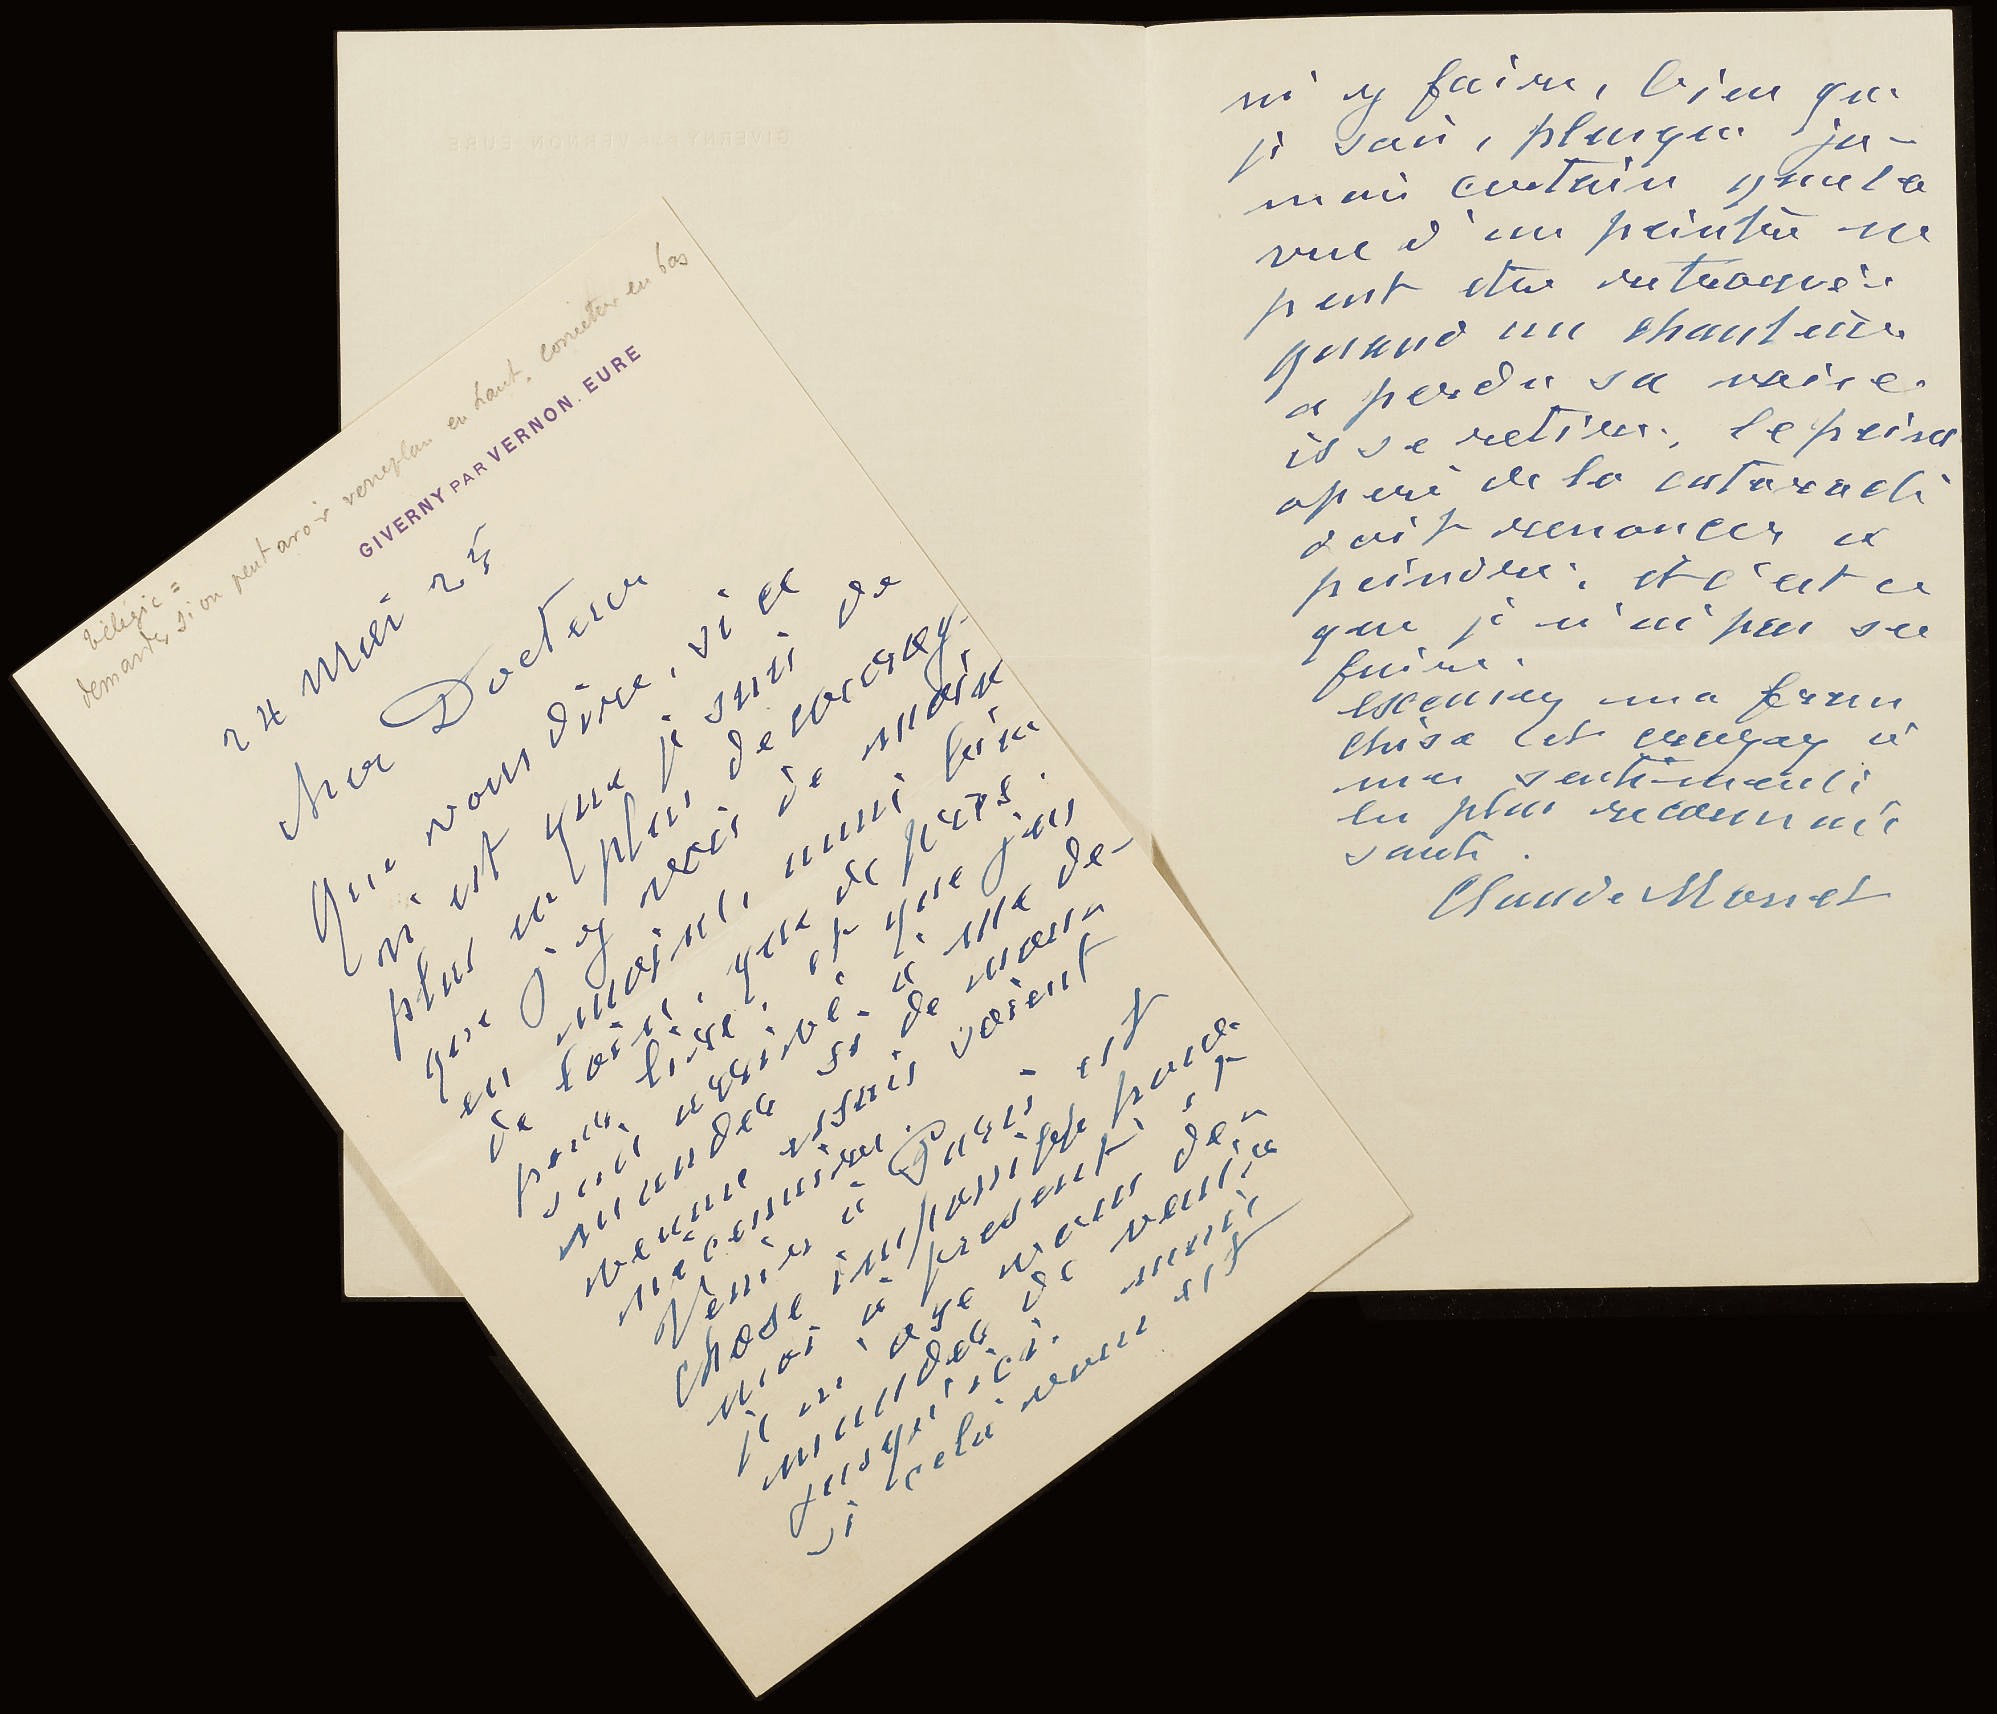 télégie =
demander si on peut avoir verre plan en haut, correcteur en bas
GIVERNY PAR VERNON. EURE
24 Mai 25
Cher Docteur
Que vous dire, si ce
n'est que je suis de
plus en plus decourag-
que j'y vois de moin
en moins, aussi bien
de loin, que de près.
pour lire, et que j'en
suis arrivé à me de-
mander si de nouv
verres essais soient
nécessaire.
Venir à Paris est
chose impossible pour
moi à present, et
je n'ose vous de
mander de venir
jusqu'ici. mais
si cela vous est
GIVERNY PAR VERNON EURE
ni y faire, bien que
je sais, plus que ja-
mais certain que la
vue d'un peintre ne
peut etre retrouvée
quand un chanteur
a perdu sa voix e
il se retire, le peint
operé de la cataracte
doit renoncer a
peindre; et c'est ce
que je n'ai pas su
faire.
excusez ma fran
chise et croyez à
mes sentiments
les plus reconnais
sants.
Claude Monet